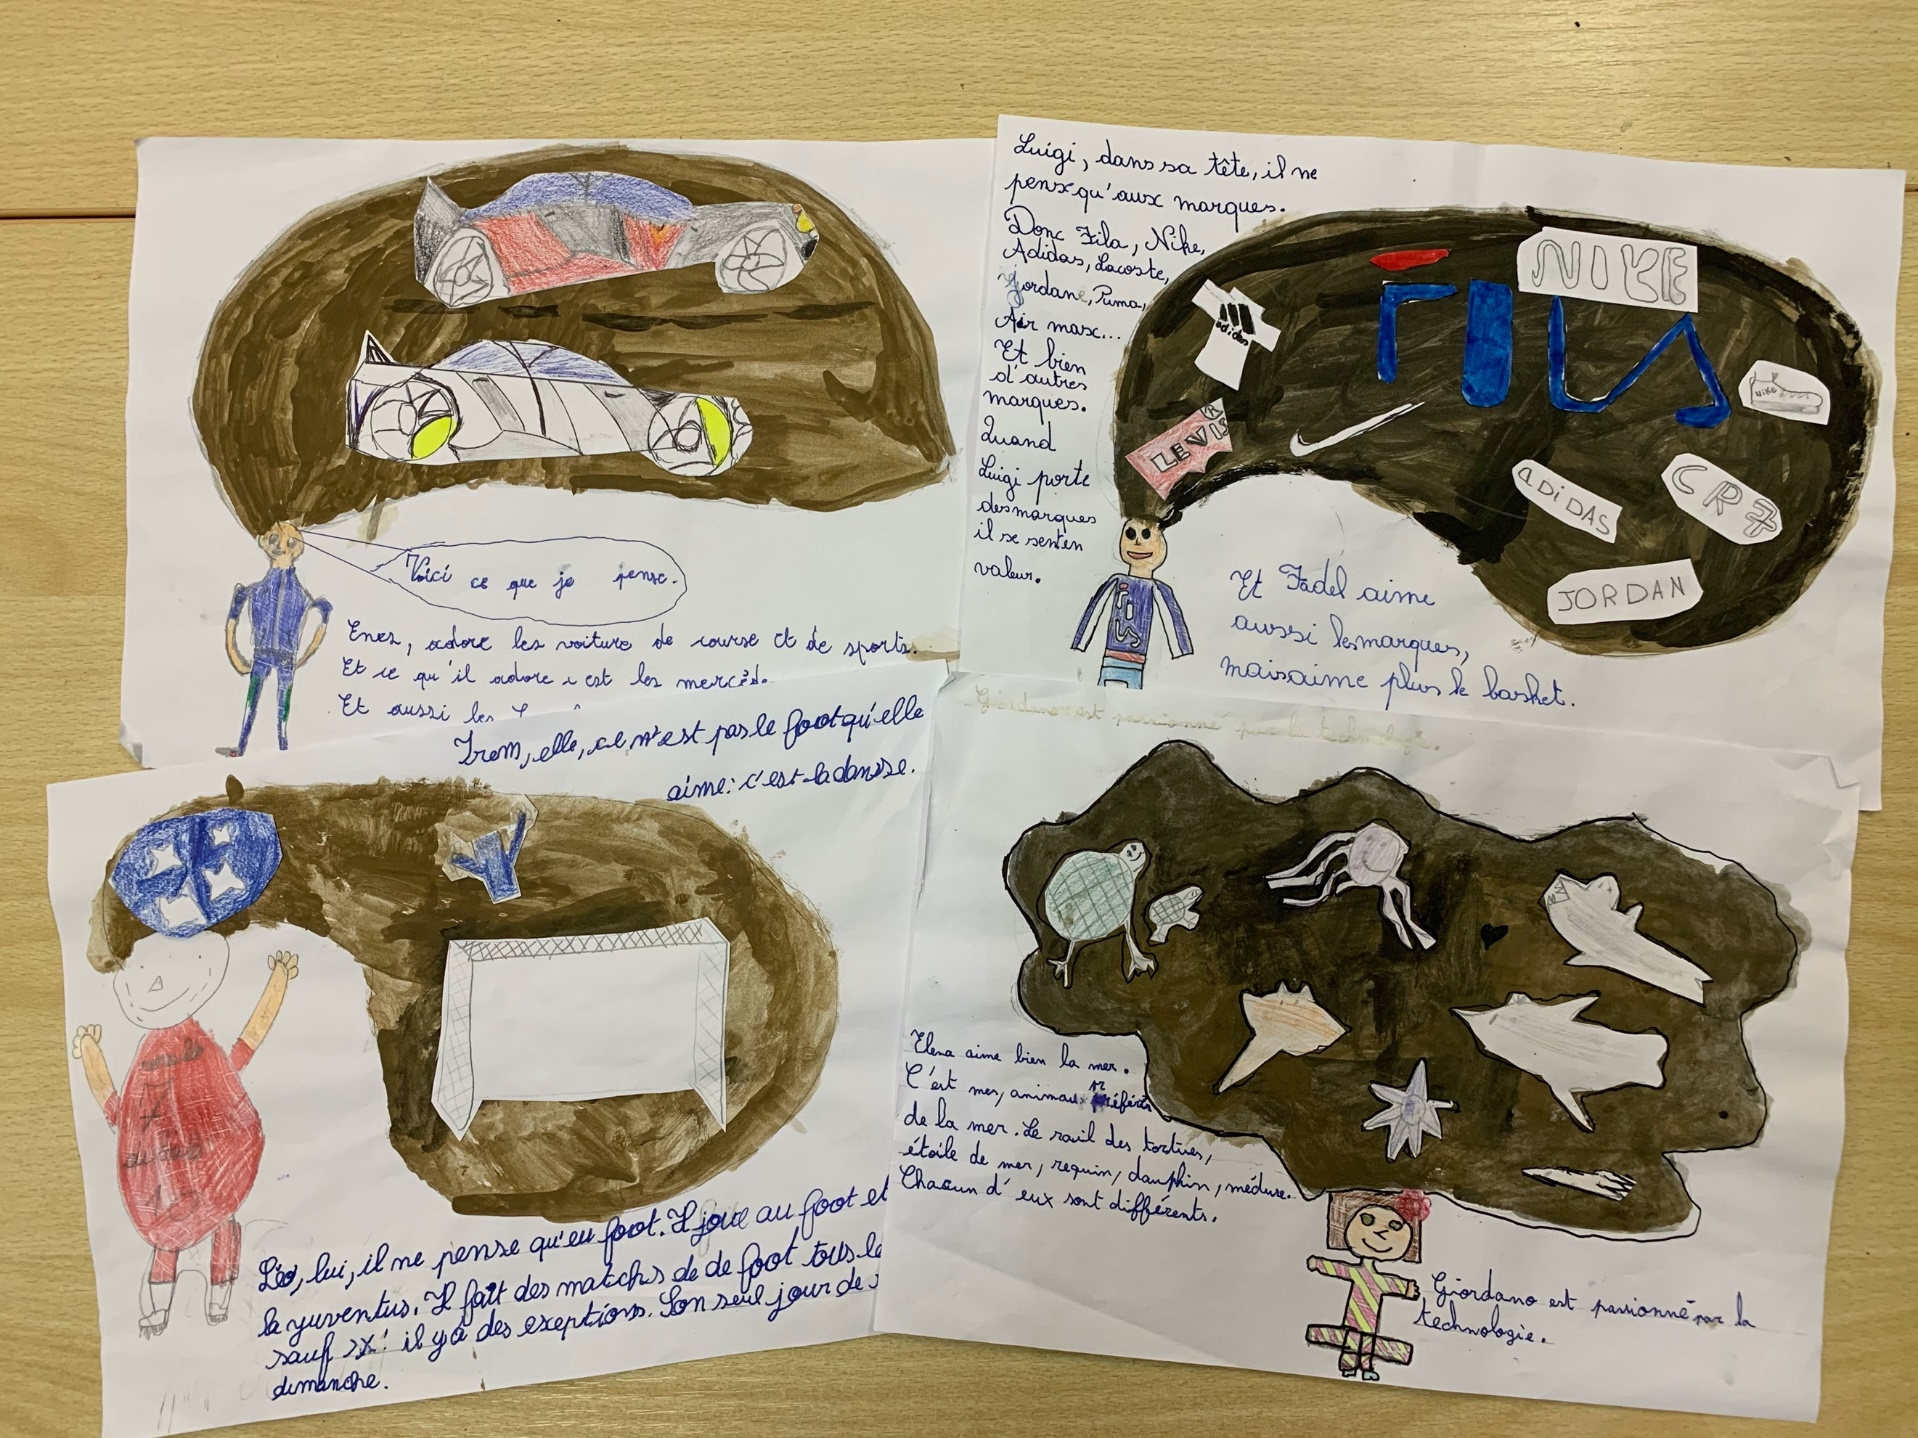 Voici ce que je pense.
Enes, adore les voiture de course et de sports.
Et ce qu'il adore c est les mercès.
Et aussi les
Luigi, dans sa tête, il ne
pense qu'aux marques.
Donc Fila, Nike,
Adidas, Lacoste,
Jordane, Puma,
Air max...
Et bien
d'autres
marques.
Quand
Luigi porte
des marques
il se sent en
valeur.
NIKE
FILA
adidas
LEVIS ®
NIKE
ADIDAS
CR7
JORDAN
FILA
Et Fadel aime
aussi les marques,
mais aime plus le basket.
Irem, elle, ce n'est pas le foot qu'elle
aime: c'est la danse.
Léo, lui, il ne pense qu'eu foot. Il joue au foot et
la yuventus. Il fait des matchs de de foot tous le
sauf il y a des exeptions. Son seul jour de
dimanche.
Giordano est passionné par la technologie.
Elena aime bien la mer.
C'est mes, animaux préférés
de la mer. Le rail des tortues,
étoile de mer, requin, dauphin, méduse.
Chacun d'eux sont différents.
Giordano est passionné par la
technologie.